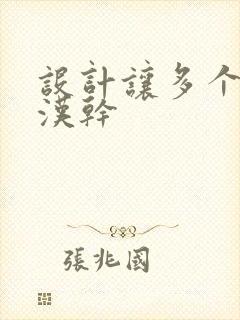 設計讓多个
漢幹
張兆國